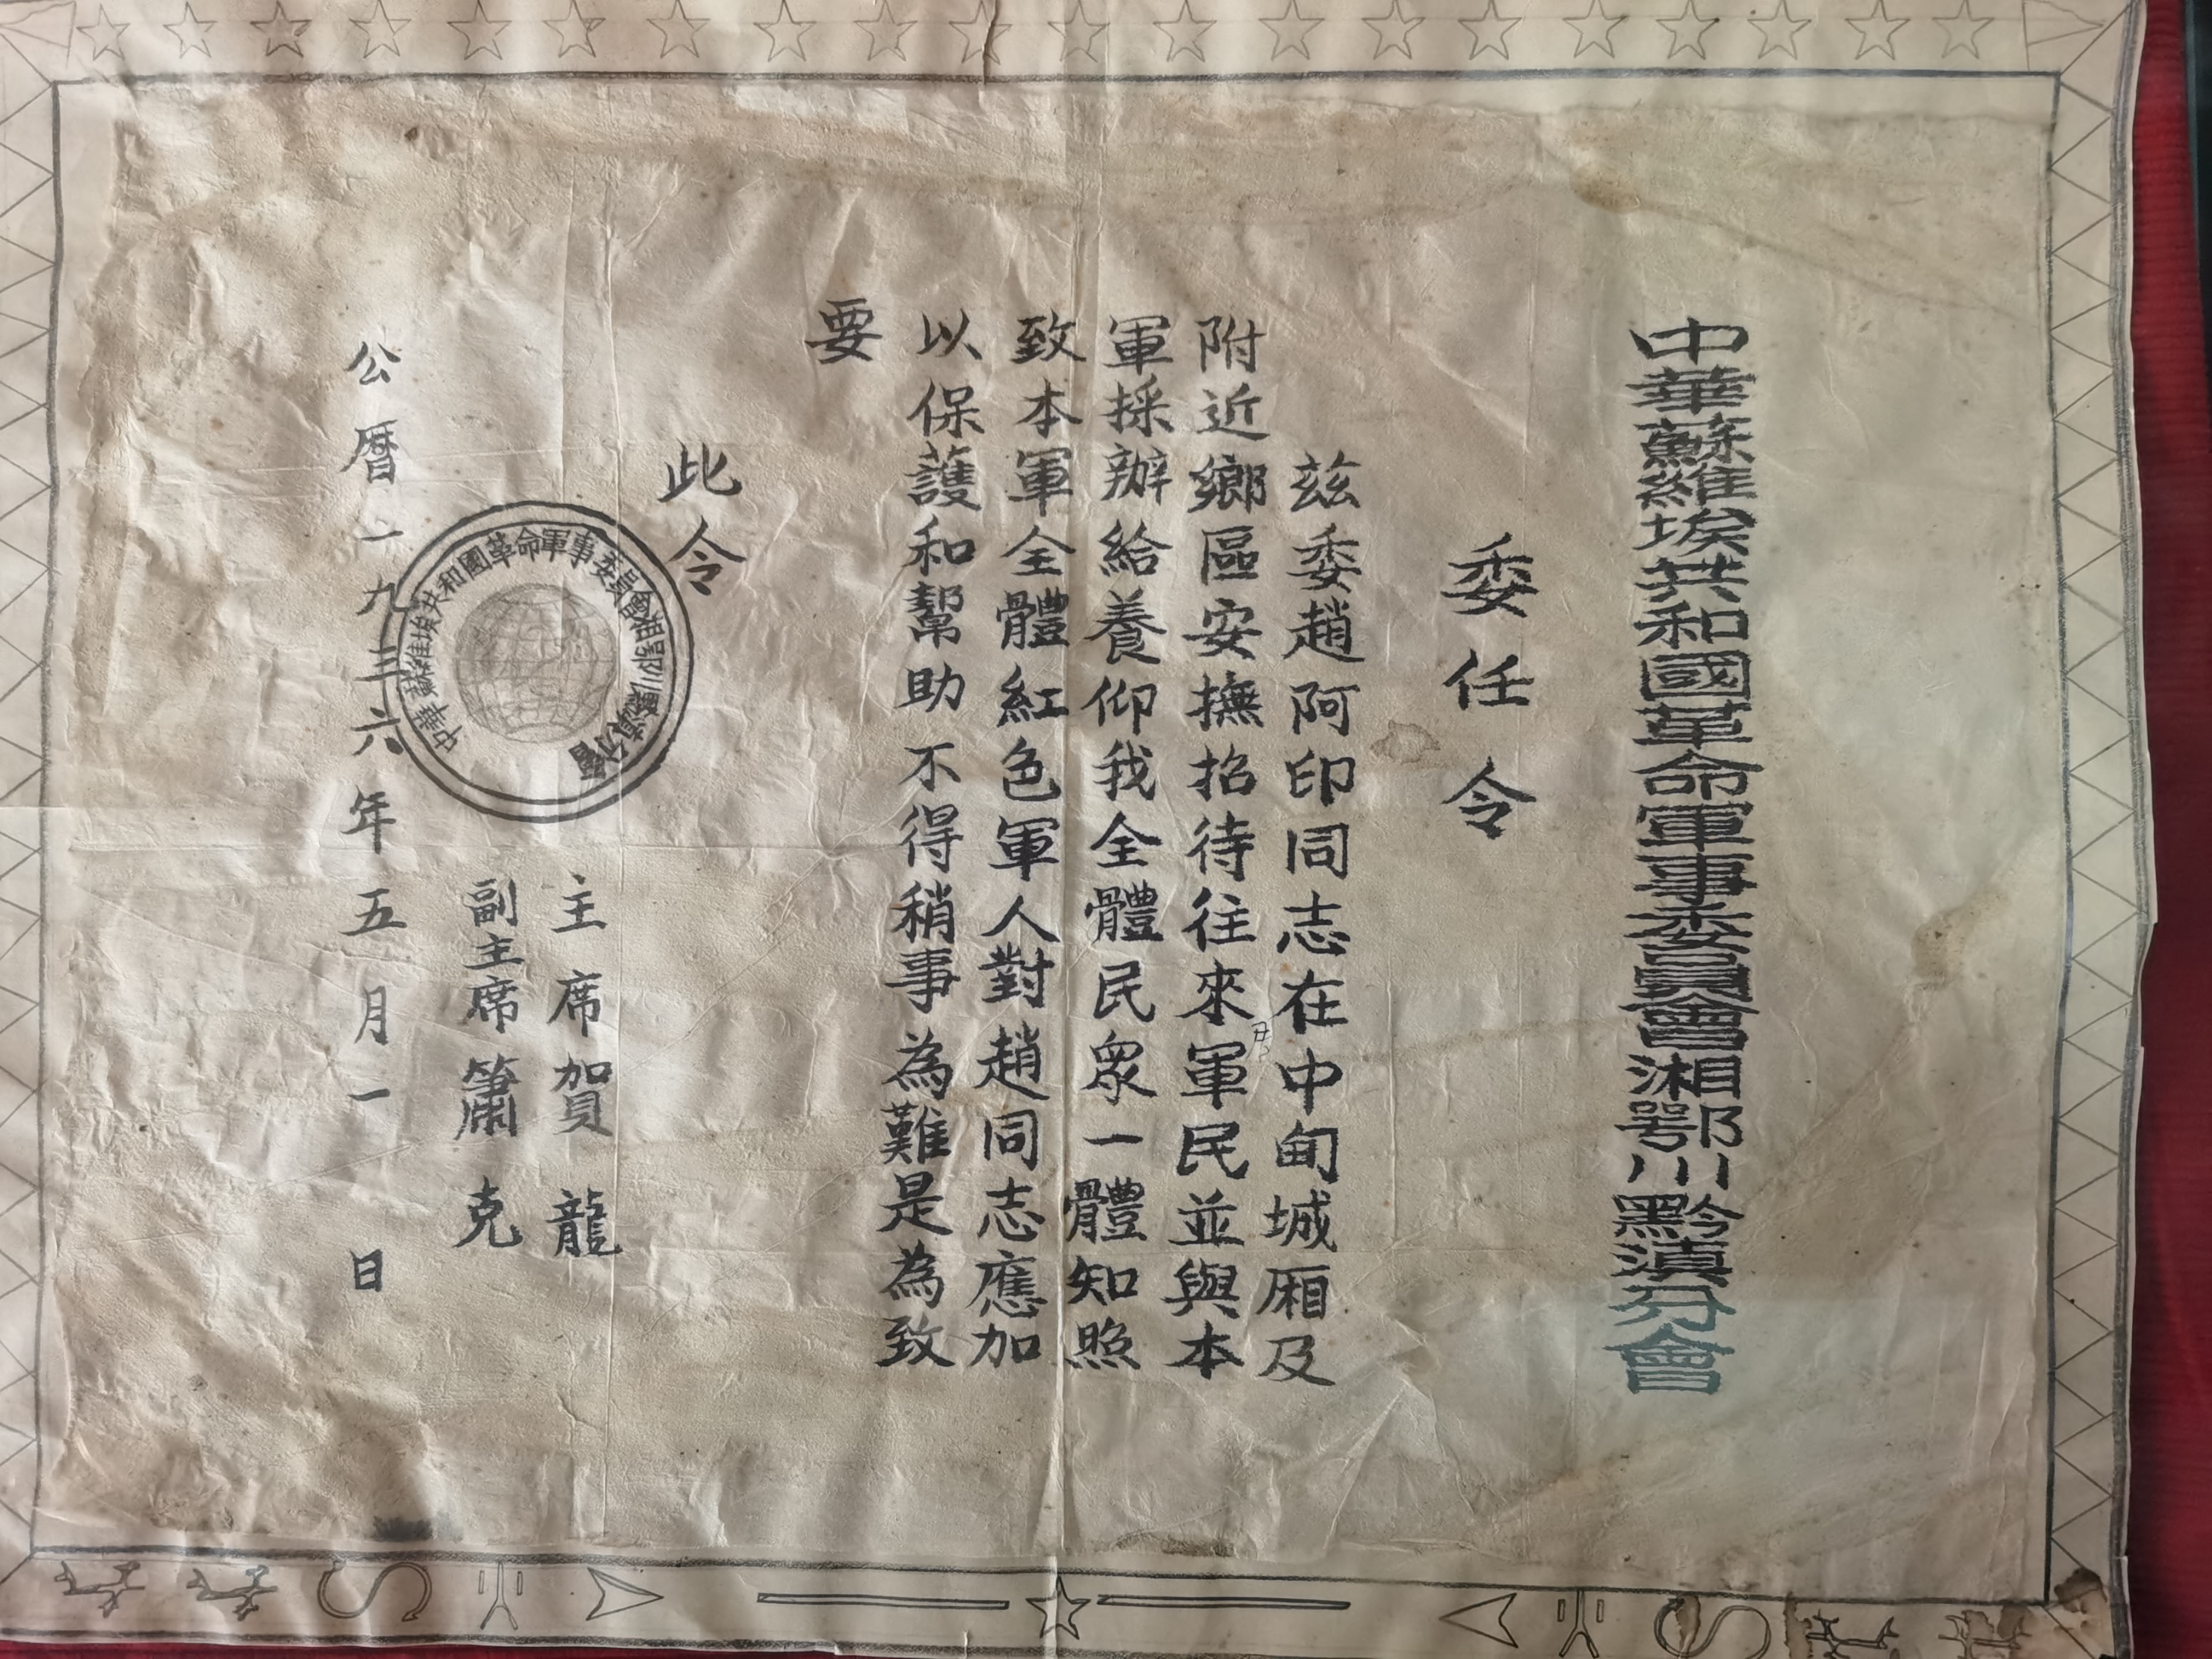 中華蘇維埃共和國革命軍事委員會湘鄂川黔滇分會
委任令
茲委趙阿印同志在中甸城廂及
附近鄉區安撫招待往來軍民並與本
軍採辦給養仰我全體民眾一體知照
致本軍全體紅色軍人對趙同志應加
以保護和幫助不得稍事為難是為致
要
此令
主席賀龍
副主席簫克
公曆一九三六年五月一日
中華蘇維埃共和國革命軍事委員會湘鄂川黔滇分會